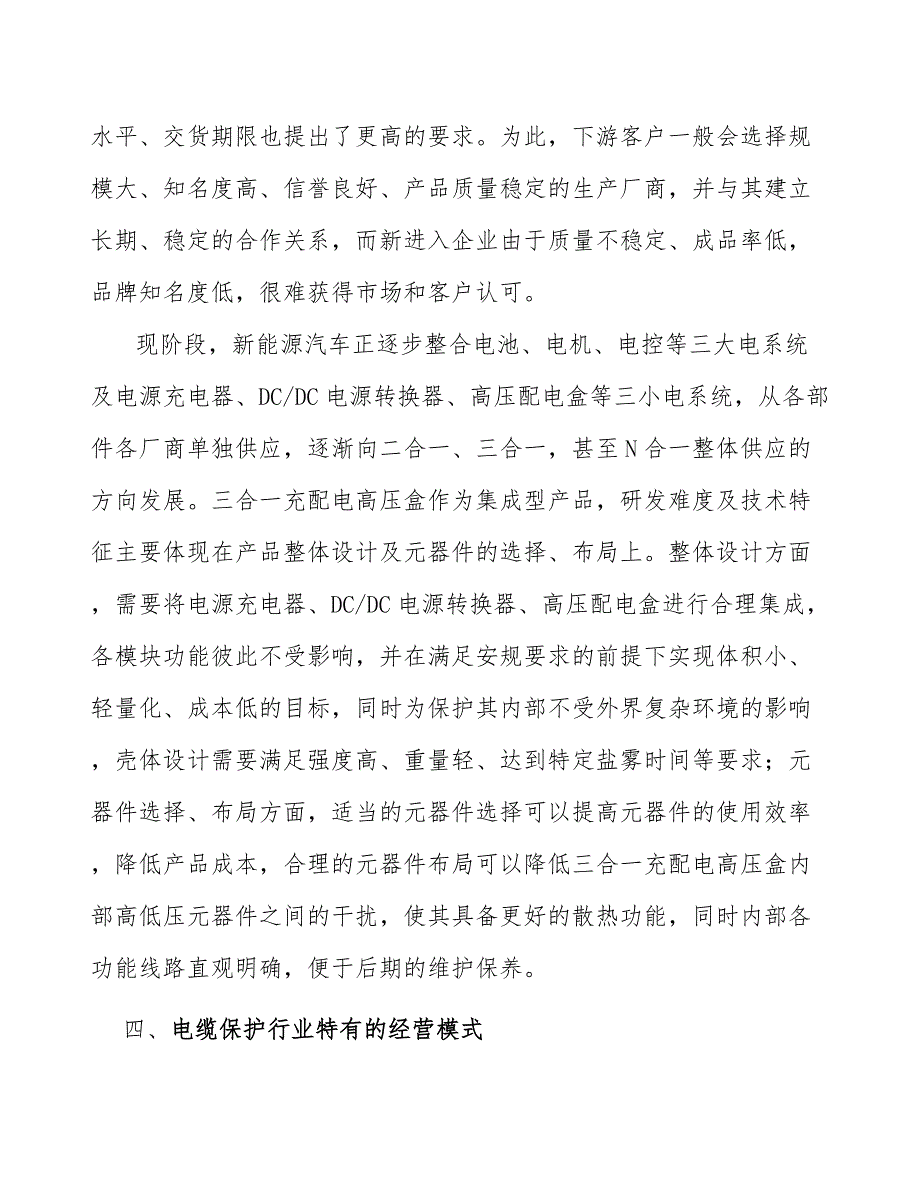 水平、交货期限也提出了更高的要求。为此，下游客户一般会选择规
模大、知名度高、信誉良好、产品质量稳定的生产厂商，并与其建立
长期、稳定的合作关系，而新进入企业由于质量不稳定、成品率低，
品牌知名度低，很难获得市场和客户认可。
现阶段，新能源汽车正逐步整合电池、电机、电控等三大电系统
及电源充电器、DC/DC 电源转换器、高压配电盒等三小电系统，从各部
件各厂商单独供应，逐渐向二合一、三合一，甚至 N 合一整体供应的
方向发展。三合一充配电高压盒作为集成型产品，研发难度及技术特
征主要体现在产品整体设计及元器件的选择、布局上。整体设计方面
，需要将电源充电器、DC/DC 电源转换器、高压配电盒进行合理集成，
各模块功能彼此不受影响，并在满足安规要求的前提下实现体积小、
轻量化、成本低的目标，同时为保护其内部不受外界复杂环境的影响
，壳体设计需要满足强度高、重量轻、达到特定盐雾时间等要求；元
器件选择、布局方面，适当的元器件选择可以提高元器件的使用效率
，降低产品成本，合理的元器件布局可以降低三合一充配电高压盒内
部高低压元器件之间的干扰，使其具备更好的散热功能，同时内部各
功能线路直观明确，便于后期的维护保养。
四、电缆保护行业特有的经营模式